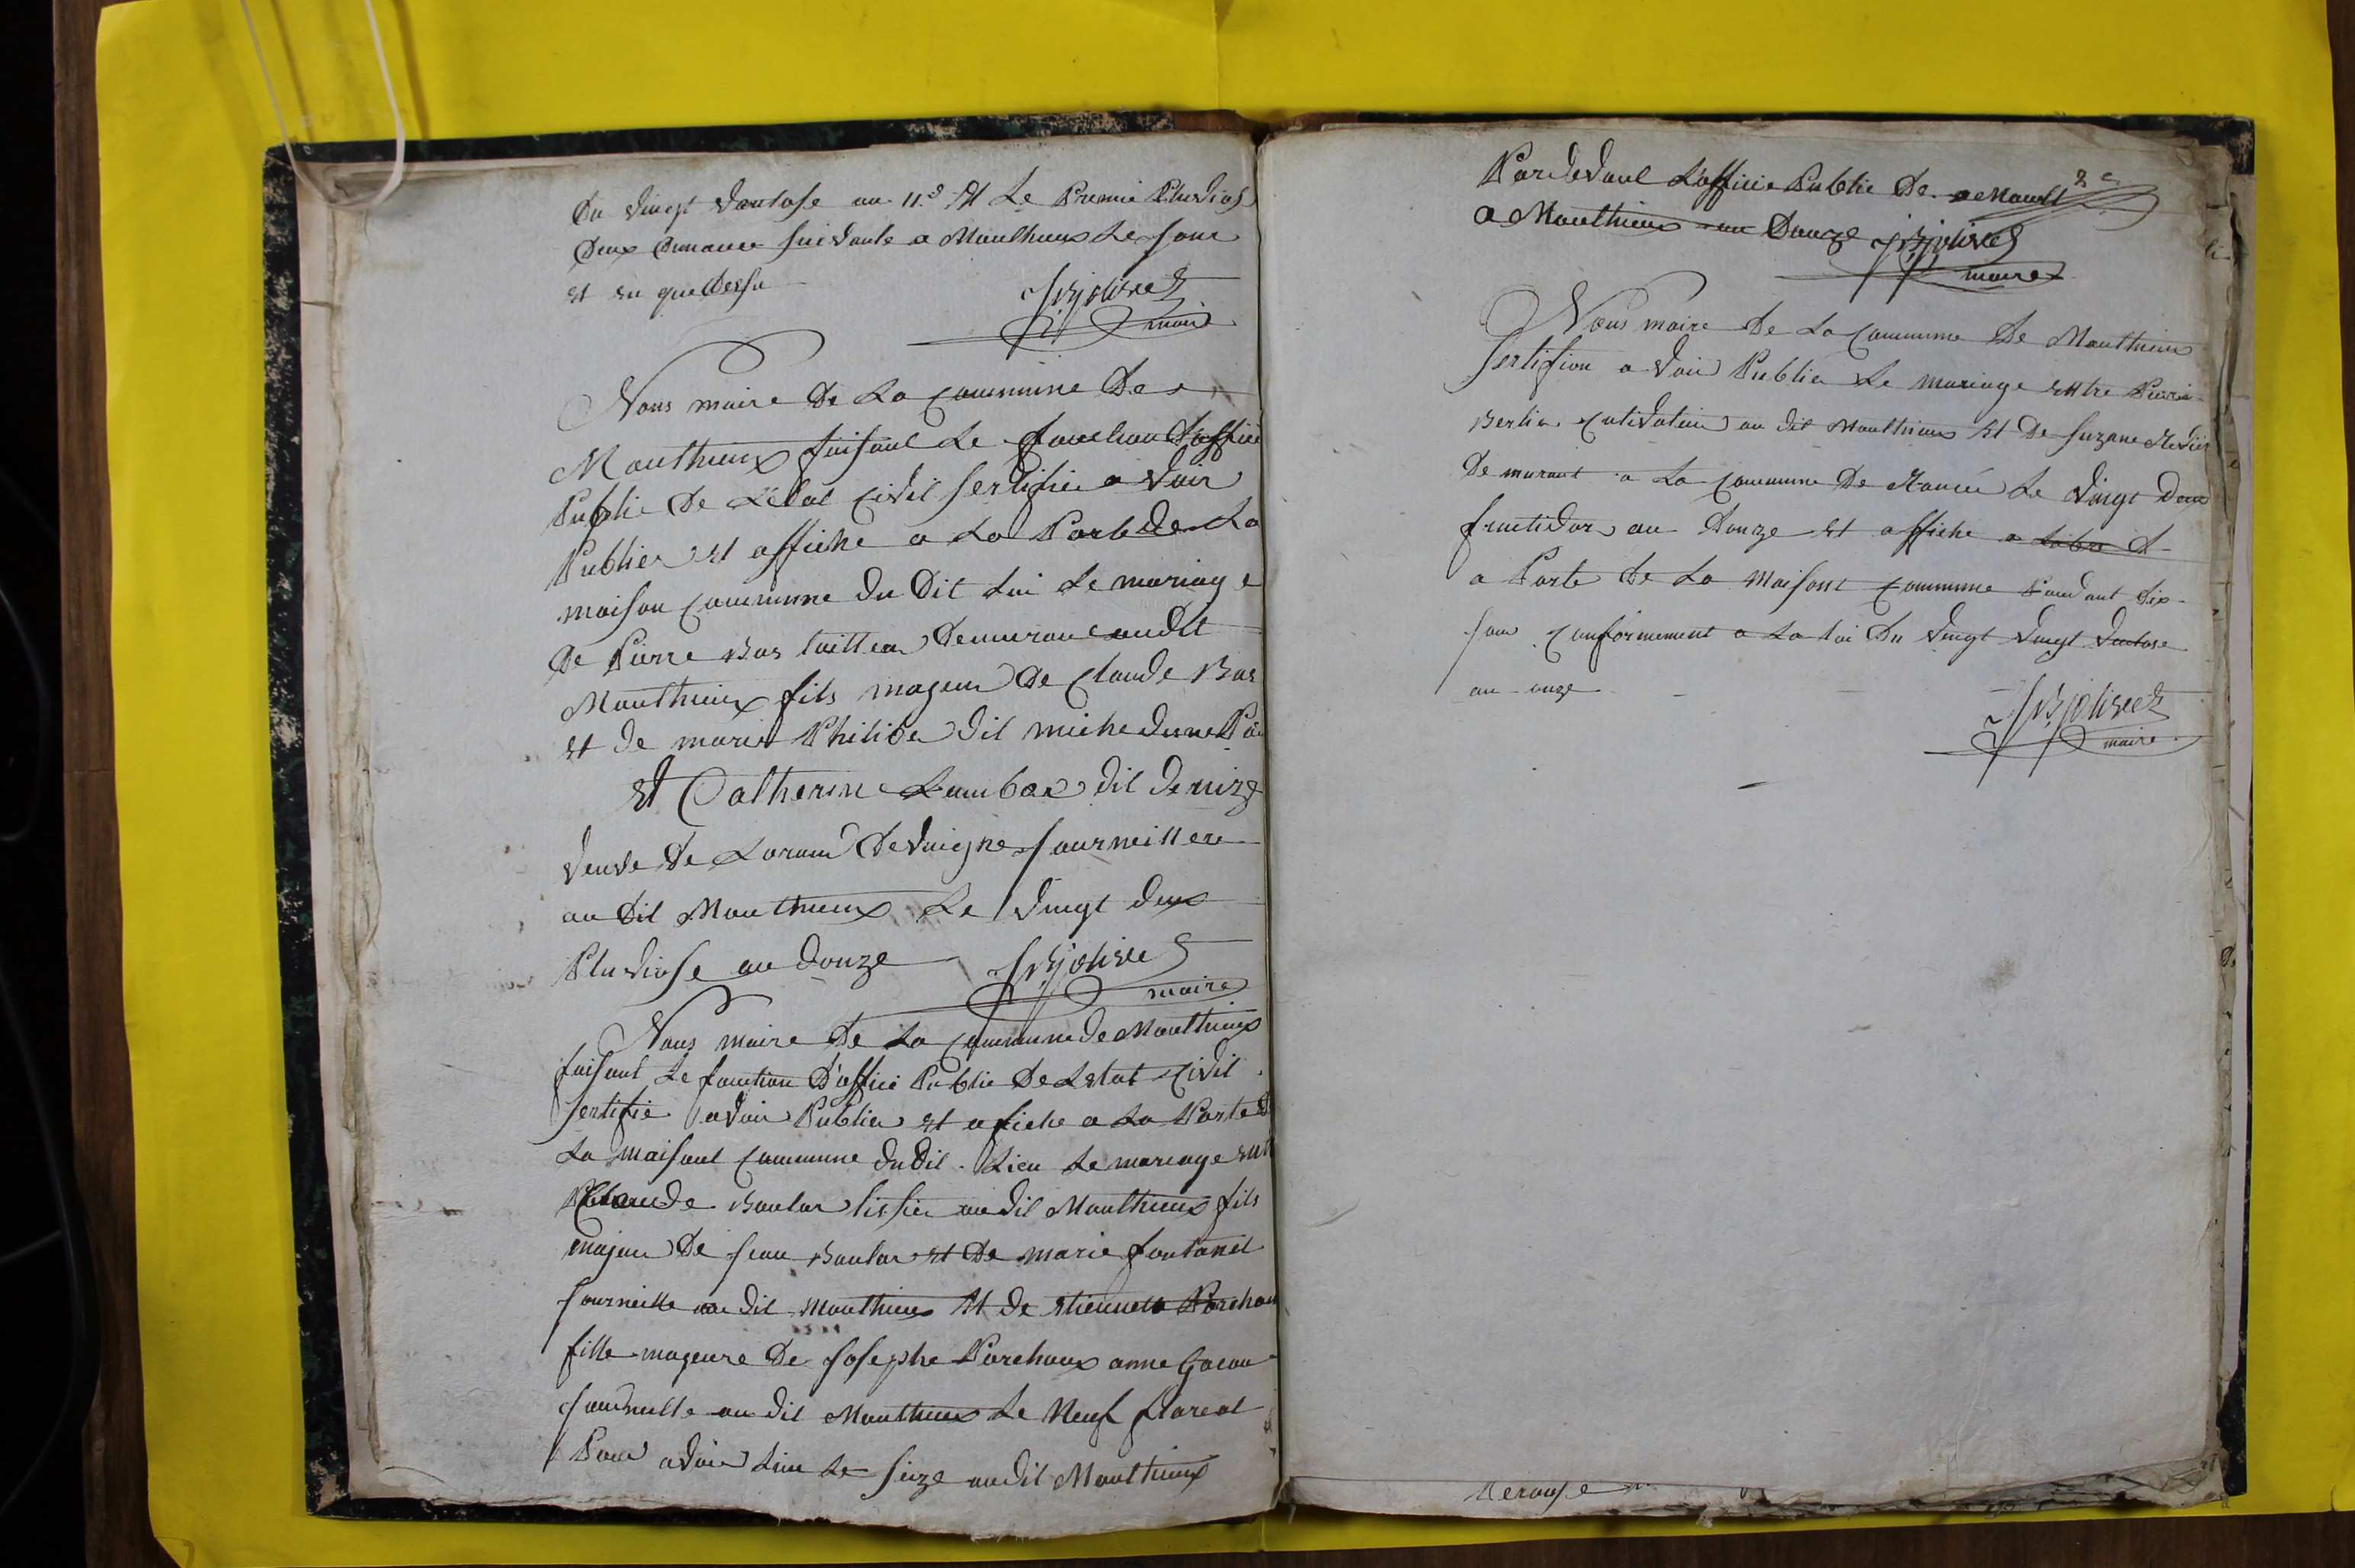 Du vingt vantose an 11e et Le Premie Pluviose
Deux Dimance suivante a Monthieux Le jour
et en que Dessu
JB Jolivet
maire
Nous maire De La Commune De
Monthieux faisant Le fonction D'office
Public De L'etat Civil sertifie avoir
Publier et affiche a La Porte De La
maison Commune Du Dit Lui Le mariage
De Pierre Bas taillieur Demurant audit
Monthieux fils mageur De Claude Bas
et de marie Philibe dit miche
et Catherine Lumbar dit Denize
veuve De Loran Devaigne journeillere
au Dit Monthieux Le vingt deux
Pluviose an Douze
JB Jolivet
maire
Nous maire De La Commune De Monthieux
faisant Le fonction D'office Public De Letat Civil
sertifie avoir Publier et afiche a La Porte D
La maisont Commune Du Dit Lieu Le mariage ent
Claude Boulas tissier au dit Monthieux fils
majeur De Jean Boulas et De marie fontanel
journeille au dit Monthieux et de etiennette Porchou
fille mageure De Josephe Porchoux anne
journeille au dit Monthieux Le Neuf floreal
Pour avoir Lieu Le seize audit Monthieux
Pardevant L'office Public De
a Monthieux an Douze JB Jolivet
maire
Nous maire De La Commune De Monthieux
sertifion avoir Publier Le mariage entre Pierre
Berlie Cutivateur au dit Monthieux et De Suzane
De murant a La Commune De Rancé Le vingt Deux
fructidor an Douze et affiche a
a Porte De La Maisont Commune Pandant dix
jour Conformement a La Loi Du vingt vingt vantose
an onze
JB Jolivet
maire